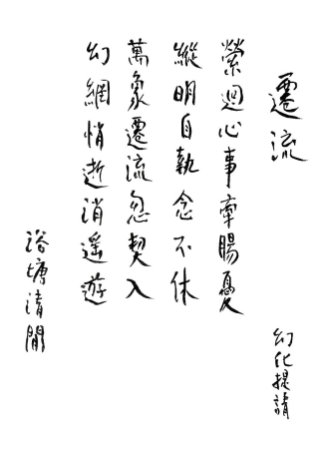 遷流
幻化提請
縈迴心事牽腸憂
縱明自執念不休
萬象遷流忽契入
幻網悄逝消遙遊
浴塘清閒